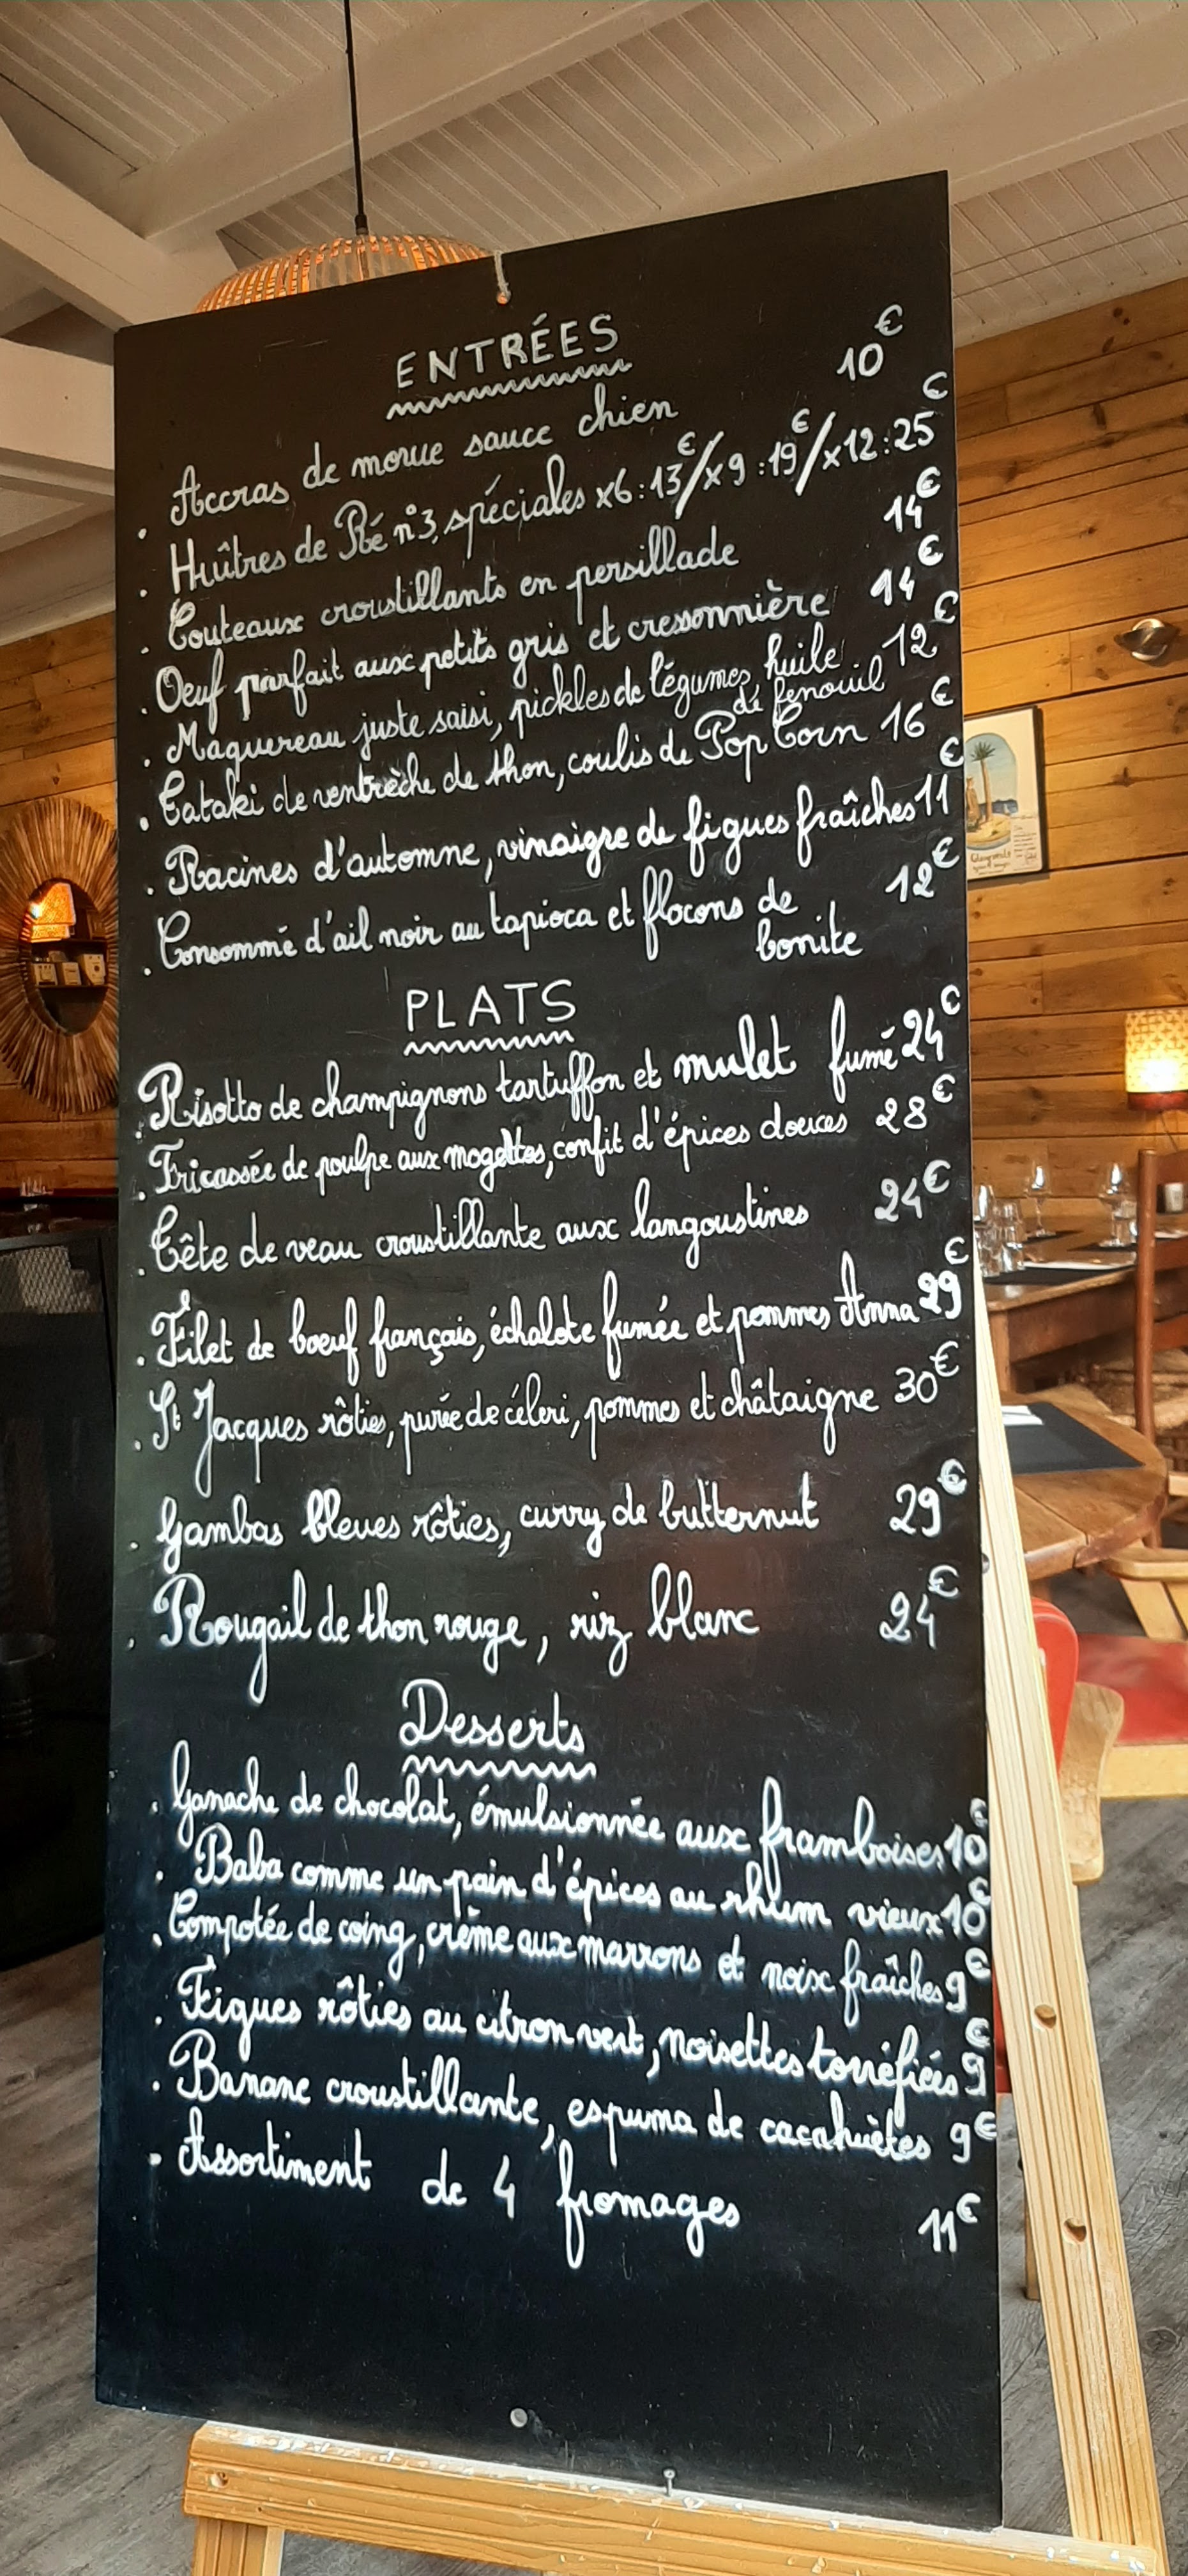 ENTRÉES
. Accras de morue sauce chien 10€
. Huîtres de Ré n°3, spéciales x6 : 13€/x9 : 19€/x12 : 25€
. Couteaux croustillants en persillade 14€
. Oeuf parfait aux petits gris et cressonnière 14€
. Maquereau juste saisi, pickles de légumes, huile 12€
de fenouil
. Tataki de ventrèche de thon, coulis de Pop Corn 16€
. Racines d'automne, vinaigre de figues fraîches 11€
. Consommé d'ail noir au tapioca et flocons de 12€
bonite
PLATS
. Risotto de champignons tartuffon et mulet fumé 24€
. Fricassée de poulpe aux mogettes, confit d'épices douces 28€
. Tête de veau croustillante aux langoustines 24€
. Filet de boeuf français, échalote fumée et pommes Anna 29€
. St Jacques rôties, purée de céleri, pommes et châtaigne 30€
. Gambas bleues rôties, curry de butternut 29€
. Rougail de thon rouge, riz blanc 24€
Desserts
. Ganache de chocolat, émulsionnée aux framboises 10€
. Baba comme un pain d'épices au rhum vieux 10€
. Compotée de coing, crème aux marrons et noix fraîches 9€
. Figues rôties au citron vert, noisettes torréfiées 9€
. Banane croustillante, espuma de cacahuètes 9€
- Assortiment de 4 fromages 11€